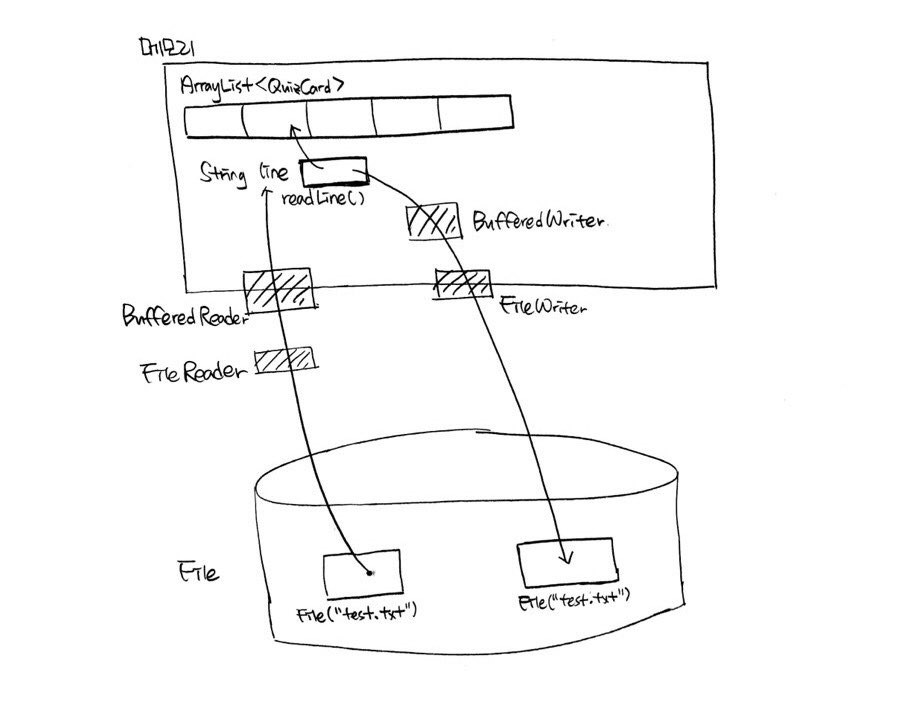 메모리
ArrayList<QuizCard>
String line
readLine()
BufferedWriter
FileWriter
BufferedReader
FileReader
File
File("test.txt")
File("test.txt")